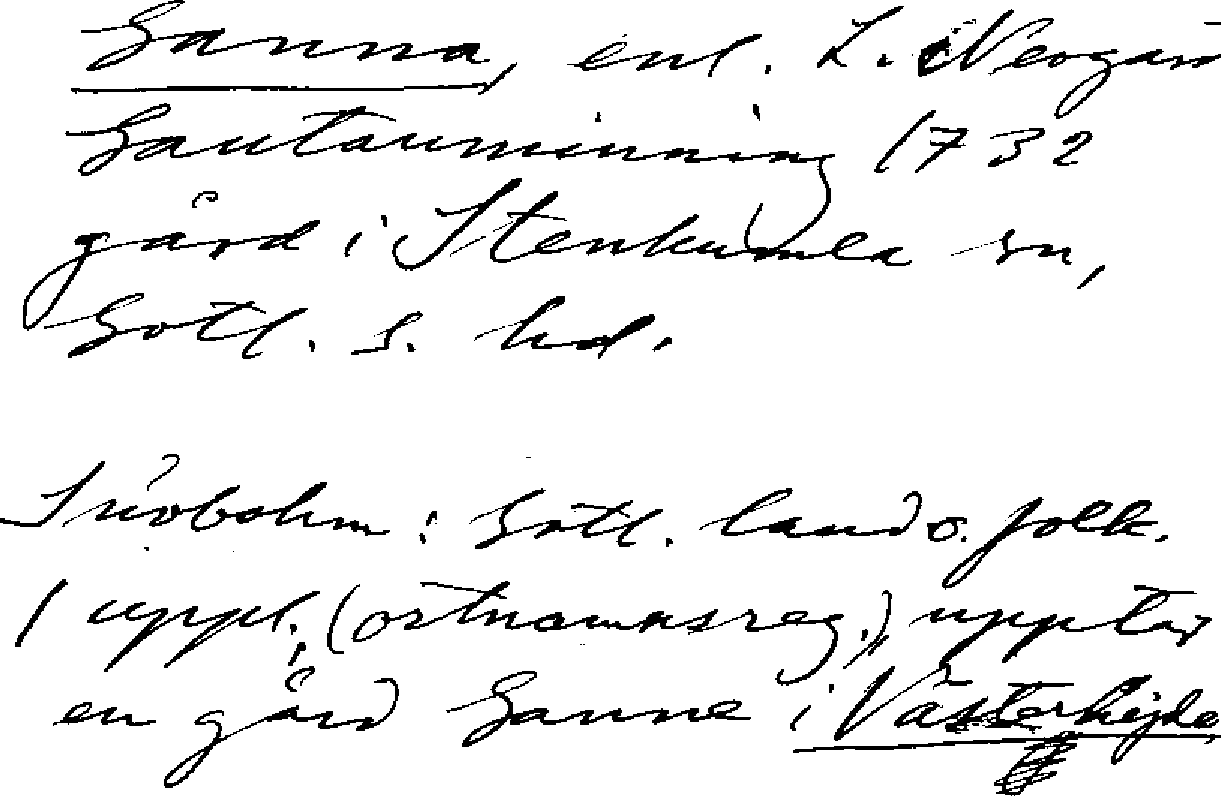 Ganna, enl. L. Neogard
Gautauminning 1732
gård i Stenkumla sn,
Gotl. s. hd.
Snöbohm: Gotl. land o. folk.
1 uppl., (ortnamnsreg.), upptar
en gård Ganne i Västerhejde